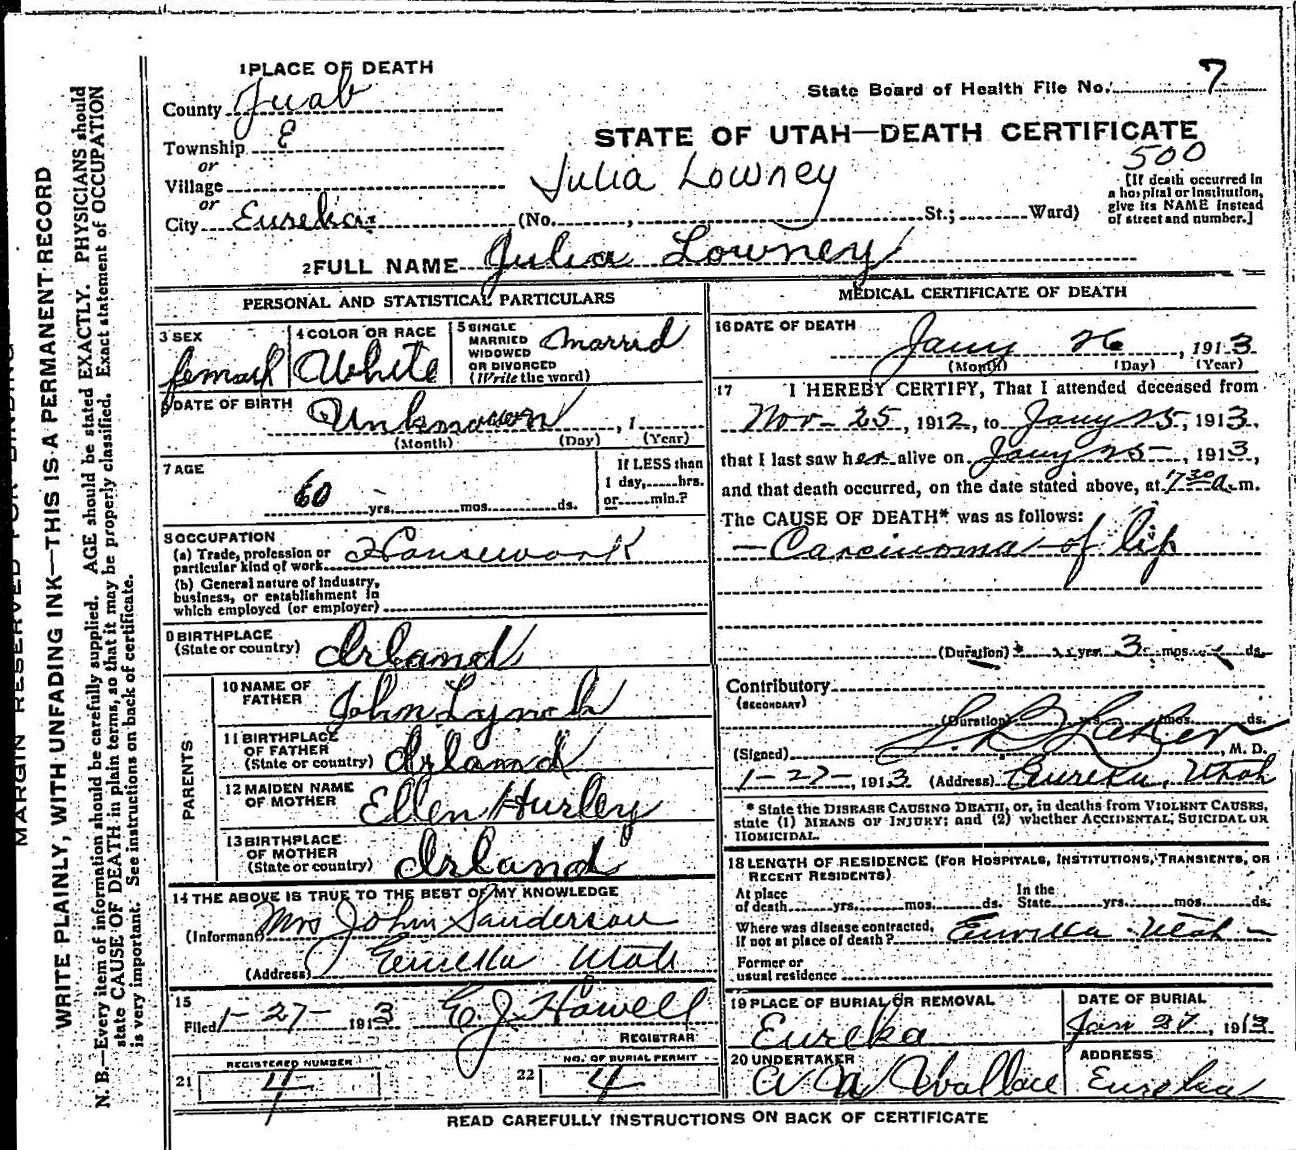 1 PLACE OF DEATH
State Board of Health File No. 7
County Juab
STATE OF UTAH—DEATH CERTIFICATE
Township E
500
or
Julia Lowney
Village
[If death occurred in a hospital or institution, give its NAME instead of street and number.]
or
City Eureka (No. , St.; Ward)
2 FULL NAME Julia Lowney
PERSONAL AND STATISTICAL PARTICULARS
3 SEX
femail
4 COLOR OR RACE
White
5 SINGLE
MARRIED
WIDOWED
OR DIVORCED
(Write the word)
Marrid
6 DATE OF BIRTH
Unknown , 1
(Month) (Day) (Year)
7 AGE
60 yrs. mos. ds.
If LESS than
1 day, hrs.
or min.?
8 OCCUPATION
(a) Trade, profession or
particular kind of work Housework
(b) General nature of industry,
business, or establishment in
which employed (or employer)
9 BIRTHPLACE
(State or country) Irland
PARENTS
10 NAME OF
FATHER John Lynch
11 BIRTHPLACE
OF FATHER
(State or country) Irland
12 MAIDEN NAME
OF MOTHER Ellen Hurley
13 BIRTHPLACE
OF MOTHER
(State or country) Irland
14 THE ABOVE IS TRUE TO THE BEST OF MY KNOWLEDGE
(Informant) Mrs John Sanderson
(Address) Eureka Utah
15
Filed 1-27- 1913 E. J. Howell
REGISTRAR
REGISTERED NUMBER
21 4
NO. OF BURIAL PERMIT
22 4
MEDICAL CERTIFICATE OF DEATH
16 DATE OF DEATH
Jany 26 , 1913
(Month) (Day) (Year)
17 I HEREBY CERTIFY, That I attended deceased from
Nov-25, 1912, to Jany 25, 1913,
that I last saw her alive on Jany 25-, 1913,
and that death occurred, on the date stated above, at 1 30 a.m.
The CAUSE OF DEATH* was as follows:
— Carcinoma of lip
(Duration) yrs. 3 mos. ds.
Contributory
(SECONDARY)
(Duration) yrs. mos. ds.
(Signed) , M. D.
1-27-, 1913 (Address) Eureka, Utah
* State the DISEASE CAUSING DEATH, or, in deaths from VIOLENT CAUSES,
state (1) MEANS OF INJURY; and (2) whether ACCIDENTAL, SUICIDAL OR
HOMICIDAL.
18 LENGTH OF RESIDENCE (FOR HOSPITALS, INSTITUTIONS, TRANSIENTS, OR
RECENT RESIDENTS)
At place
of death yrs. mos. ds.
In the
State yrs. mos. ds.
Where was disease contracted,
if not at place of death? Eureka Utah
Former or
usual residence
19 PLACE OF BURIAL OR REMOVAL
Eureka
DATE OF BURIAL
Jan 27, 1913
20 UNDERTAKER
A N Wallace
ADDRESS
Eureka
READ CAREFULLY INSTRUCTIONS ON BACK OF CERTIFICATE
MARGIN RESERVED FOR BINDING
WRITE PLAINLY, WITH UNFADING INK—THIS IS A PERMANENT RECORD
N. B.—Every item of information should be carefully supplied. AGE should be stated EXACTLY. PHYSICIANS should
state CAUSE OF DEATH in plain terms, so that it may be properly classified. Exact statement of OCCUPATION
is very important. See instructions on back of certificate.